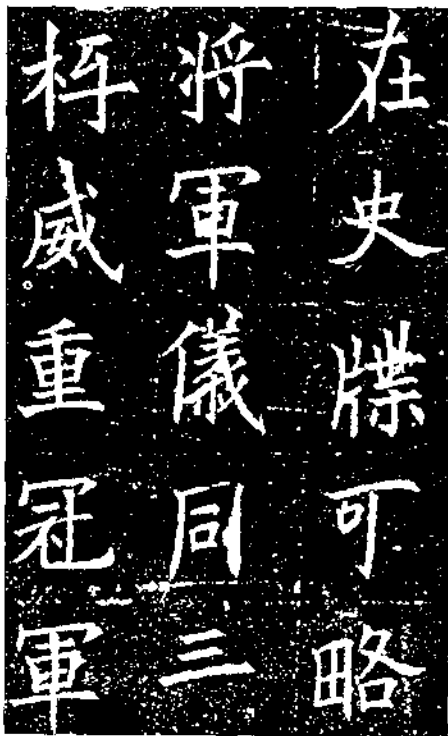 在史牒可略
将軍儀同三
威重冠軍